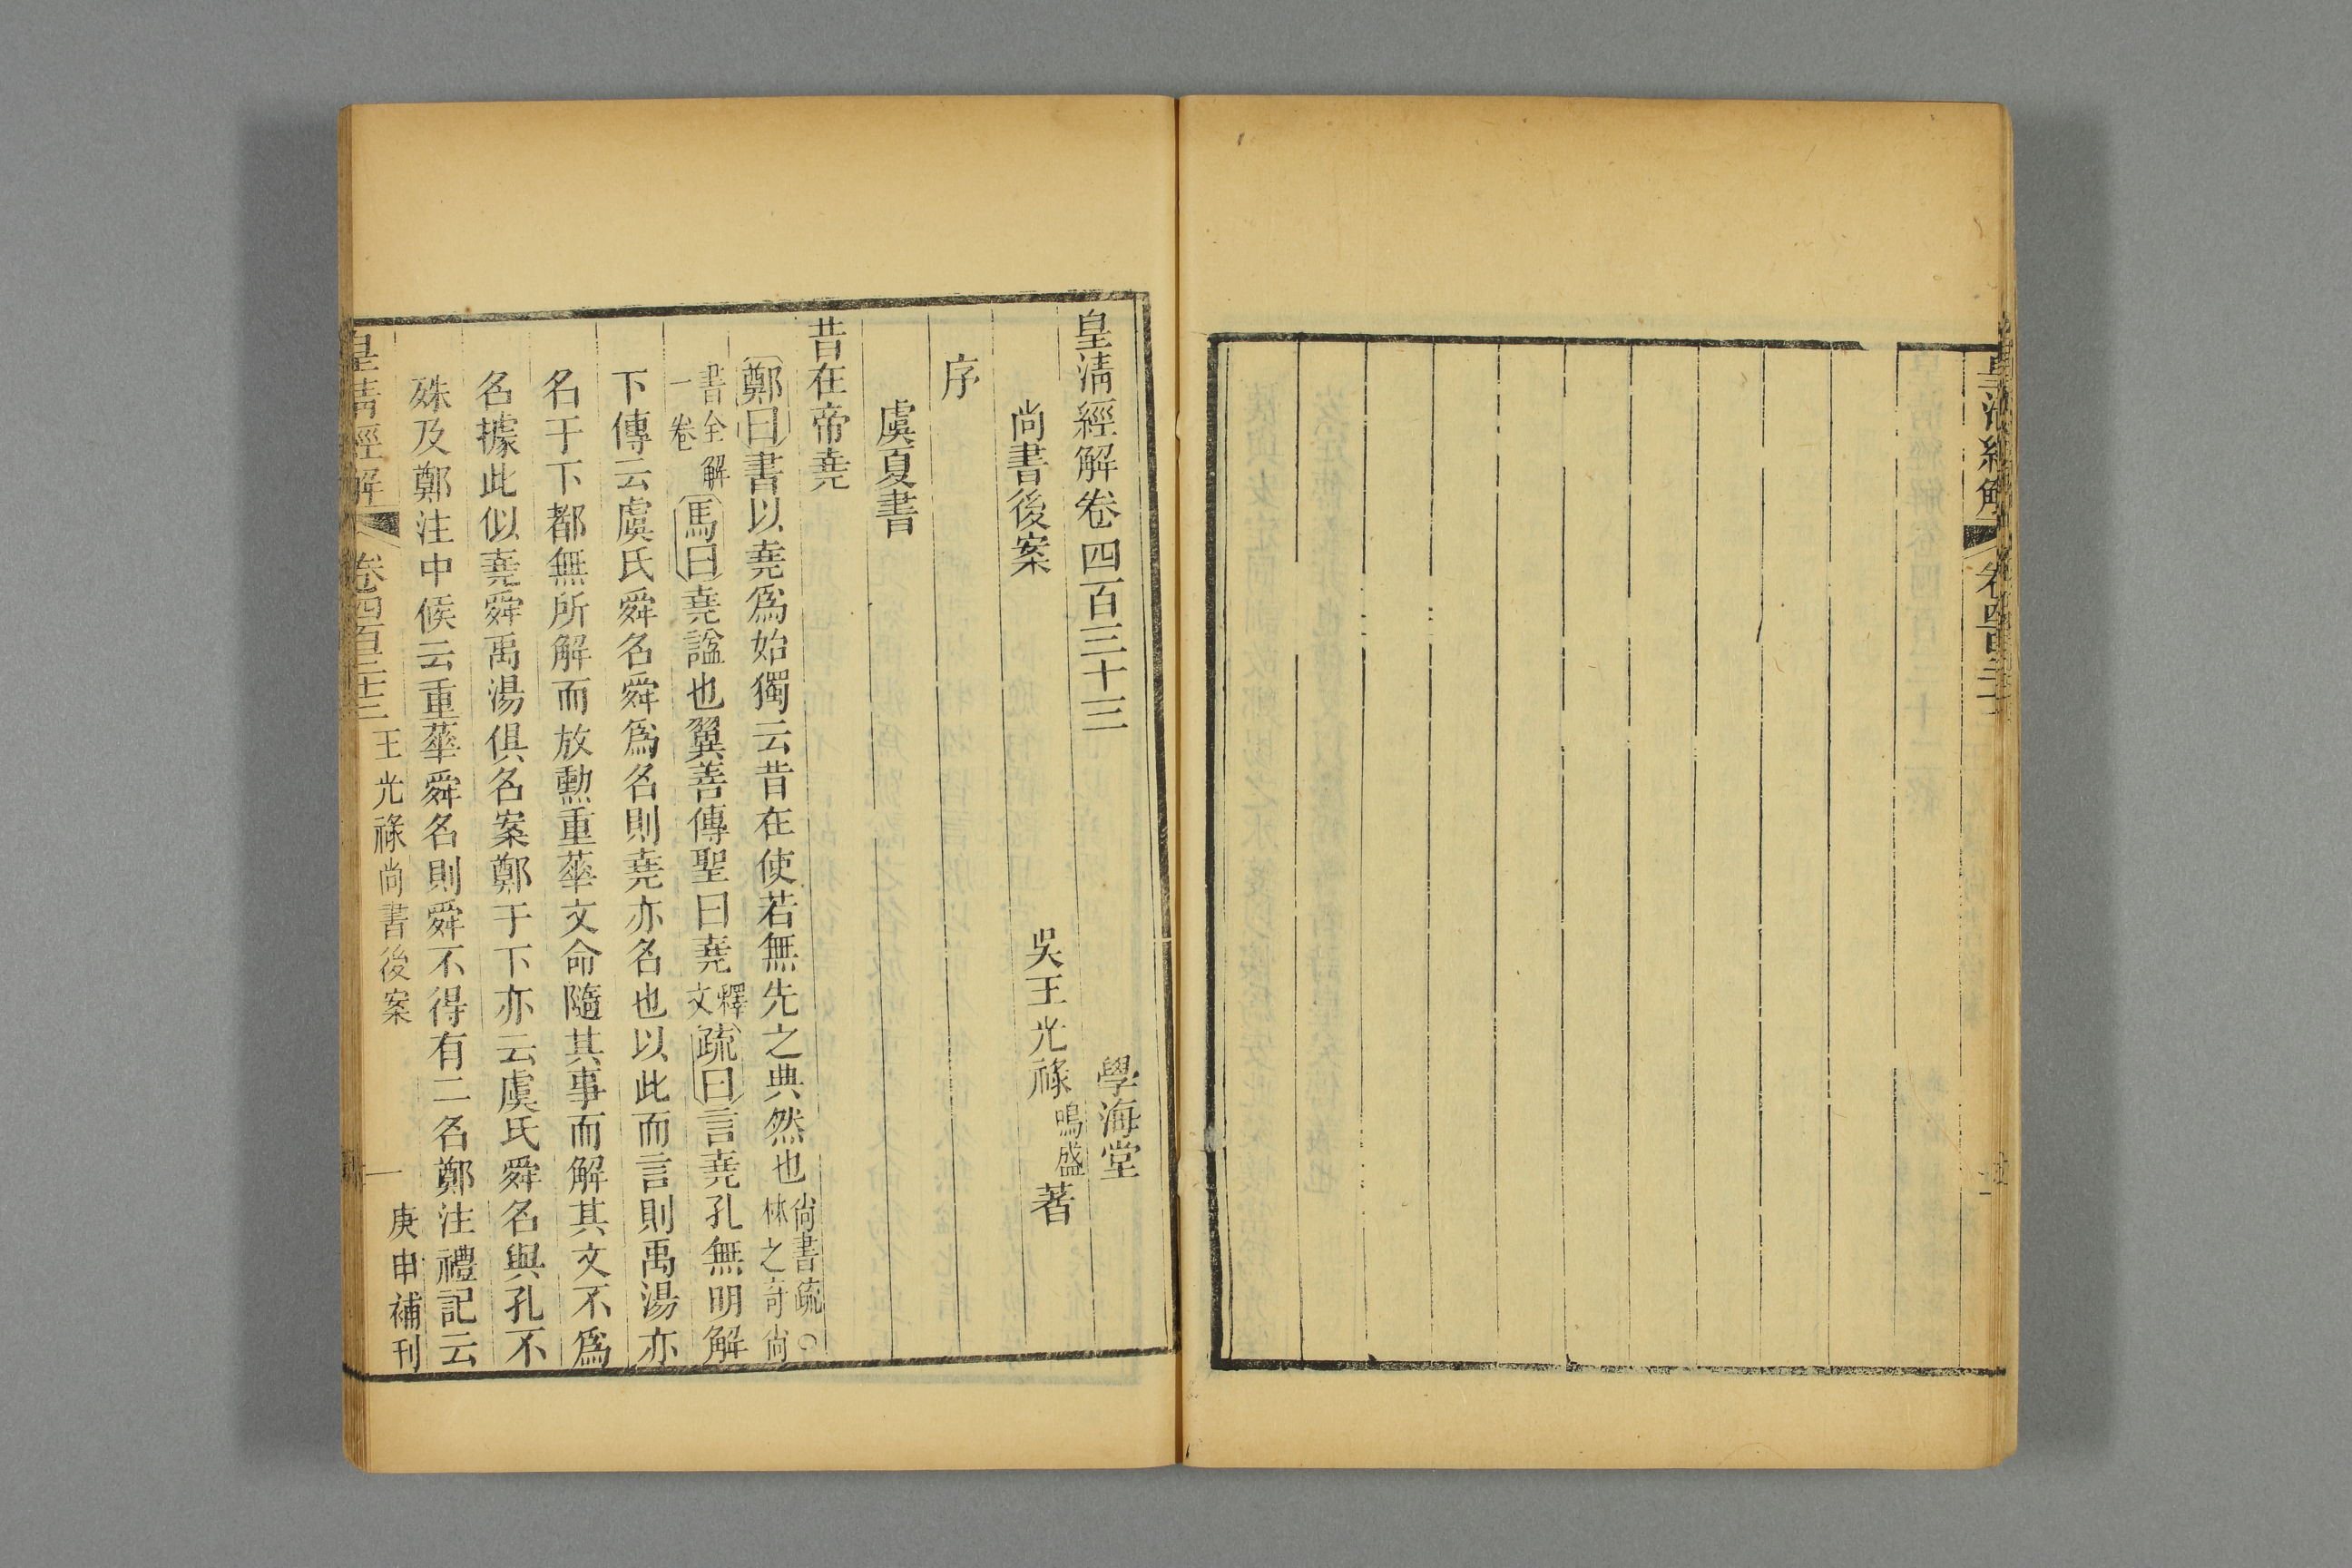 皇清經解卷四百三十三 學海堂
尚書後案 吳王光祿鳴盛著
序
虞夏書
昔在帝堯
鄭曰書以堯爲始獨云昔在使若無先之典然也尚書疏○林之奇尚
書全解一卷馬曰堯諡也翼善傳聖曰堯釋文疏曰言堯孔無明解
下傳云虞氏舜名舜爲名則堯亦名也以此而言則禹湯亦
名于下都無所解而放勲重華文命隨其事而解其文不爲
名據此似堯舜禹湯俱名案鄭于下亦云虞氏舜名與孔不
殊及鄭注中候云重華舜名則舜不得有二名鄭注禮記云
皇清經解 卷四百三十三 王光祿尚書後案 一 庚申補刊